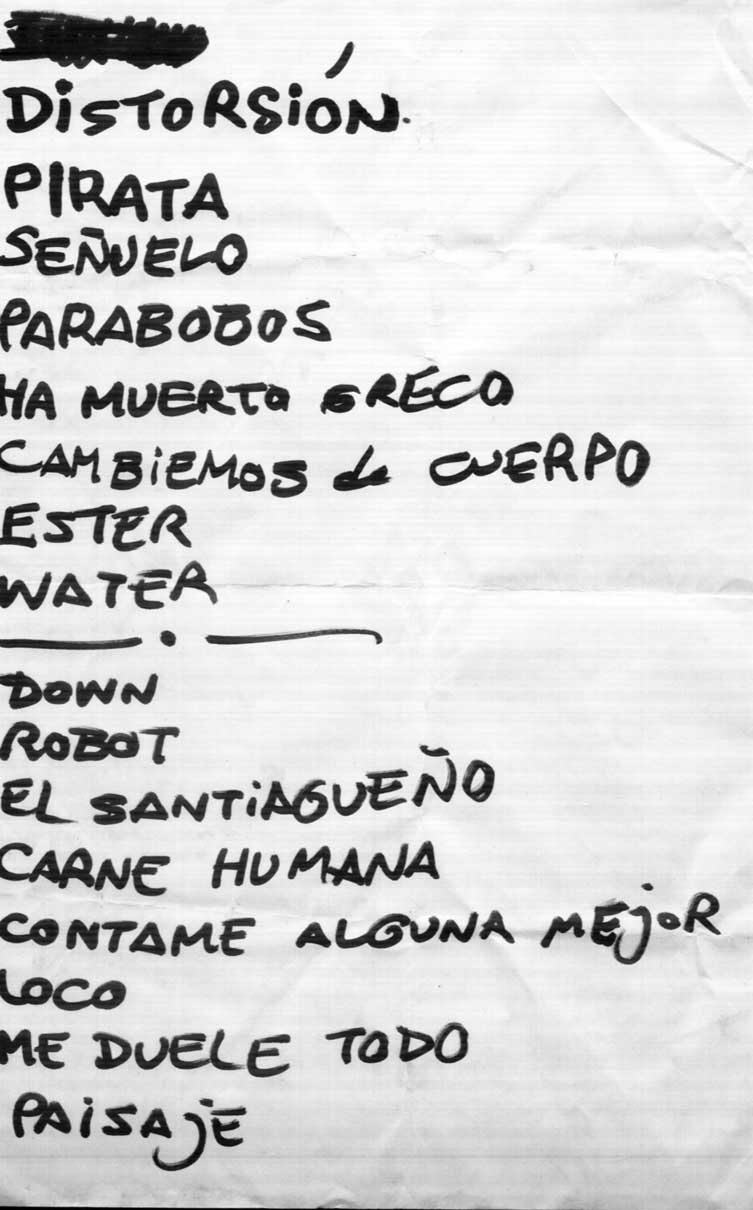 DiSTORSIÓN.
PIRATA
SEÑUELO
PARABOBOS
HA MUERTO GRECO
CAMBiEMOS de CUERPO
ESTER
WATER
DOWN
ROBOT
EL SANTiAGUEÑO
CARNE HUMANA
CONTAME ALGUNA MEjOR
LOCO
ME DUELE TODO
PAiSAjE